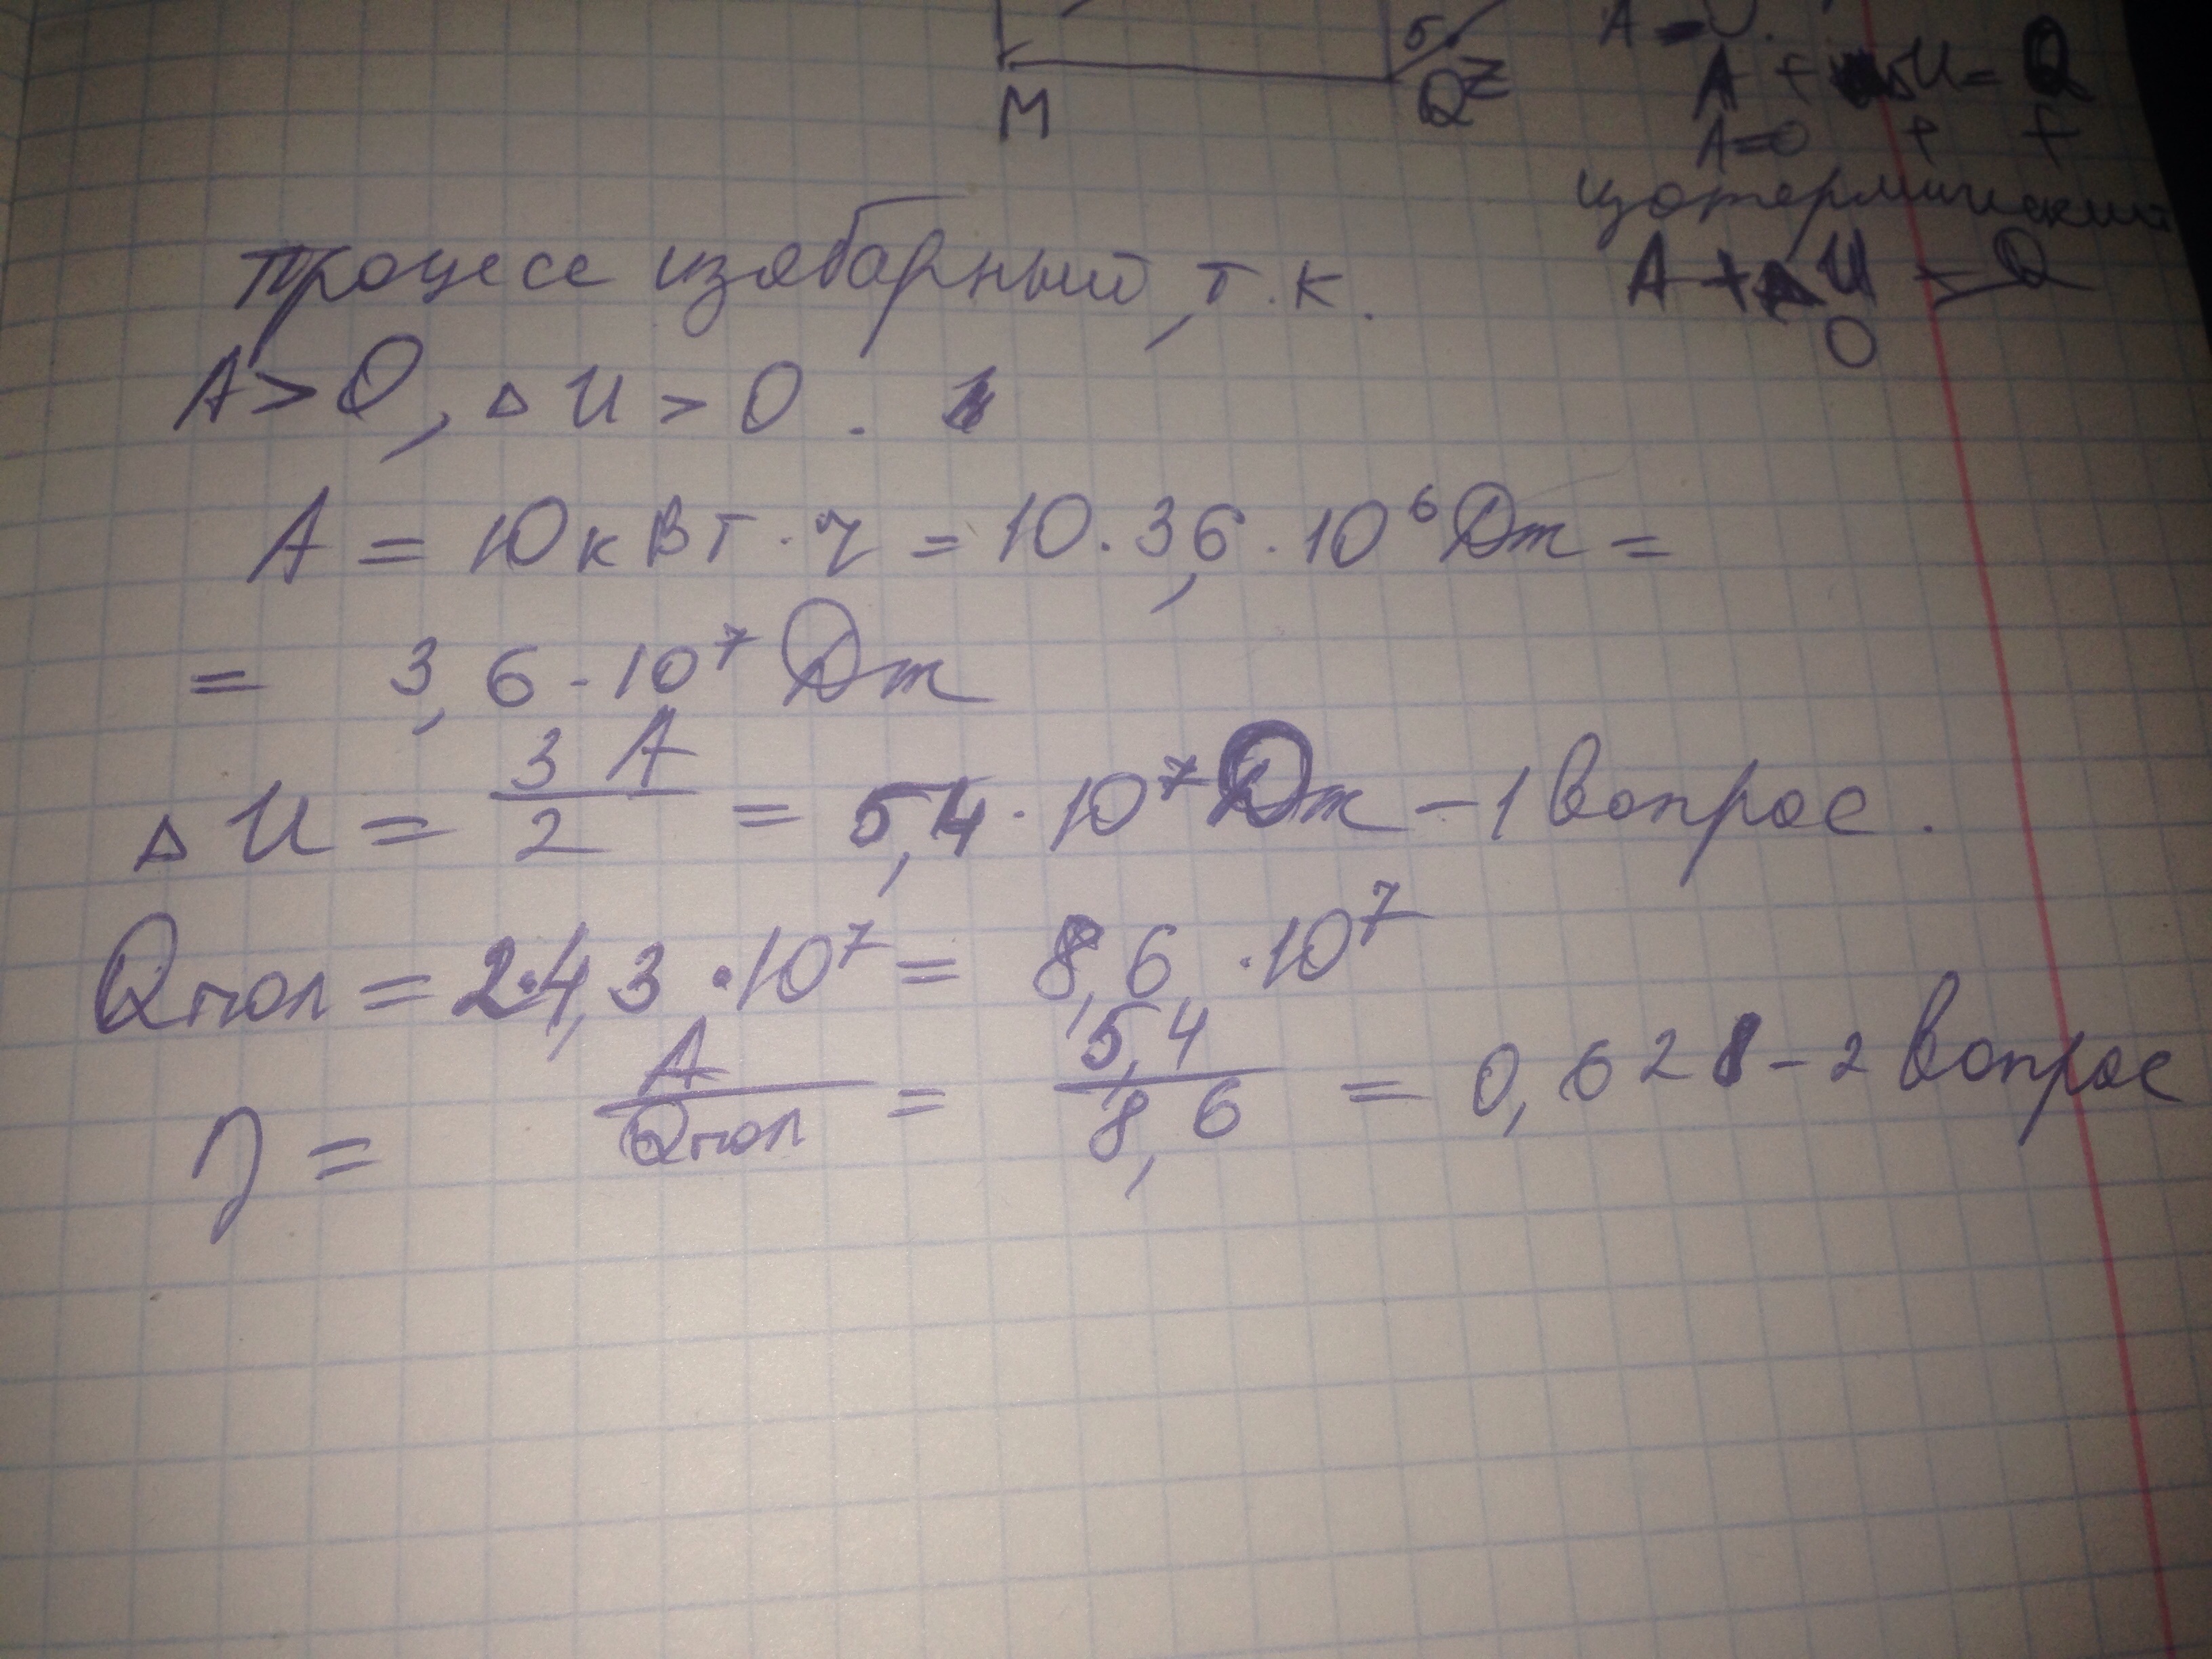 M
5
QZ
A + ΔU = Q
A=0 + +
изотермический
A + ΔU = Q
0
процесс изобарный, т.к.
A > 0, ΔU > 0.
A = 10 кВт · ч = 10 · 3,6 · 10⁶ Дж =
= 3,6 · 10⁷ Дж
ΔU = 3A/2 = 5,4 · 10⁷ Дж – 1 вопрос.
Qпол = 2·4,3 · 10⁷ = 8,6 · 10⁷
η = A/Qпол = 5,4/8,6 = 0,628 – 2 вопрос